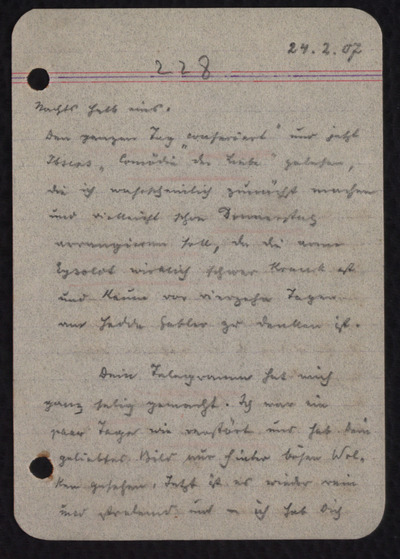 24.2.07
228
Nachts halb eins.
Den ganzen Tag „conferiert“ und jetzt
Ibsens „Comödie der Liebe“ gelesen,
die ich wahrscheinlich zunächst machen
und vielleicht schon Donnerstag
arrangieren soll, da die arme
Eysoldt wirklich schwer krank ist
und kaum vor vierzehn Tagen
an Hedda Gabler zu denken ist.
Dein Telegramm hat mich
ganz selig gemacht. Ich war ein
paar Tage wie verstört und hab dein
geliebtes Bild nur hinter bösen Wol-
ken gesehen. Jetzt ist es wieder rein
und strahlend und – ich hab Dich